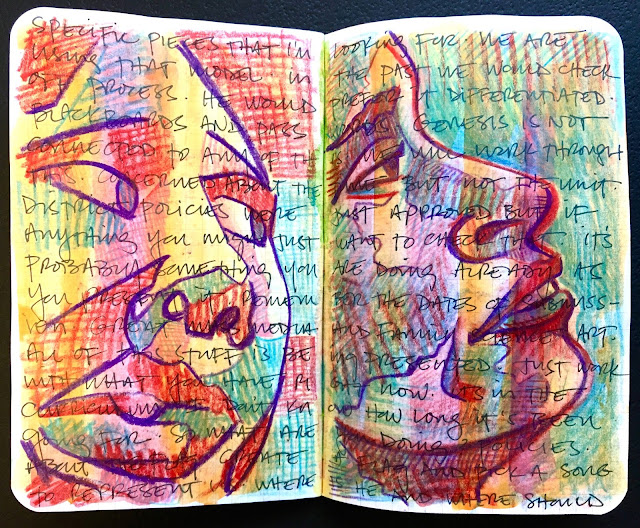 SPECIFIC PIECES THAT I'M
USING THAT MODEL. IN
PROCESS. HE WOULD
BLACKBOARDS AND PASS
CONNECTED TO ANY OF THE
THIS. CONCERNED ABOUT THE
DISTRICT POLICIES WERE
ANYTHING YOU MIGHT JUST
PROBABLY SOMETHING YOU
YOU PRESENT IT REMEM
GREAT MEDIA
ALL OF THIS STUFF IS BE
WITH WHAT YOU HAVE
CURRICULUM DON'T
GOING FOR. SO WHAT ARE
ABOUT CREATE
TO REPRESENT WHERE
LOOKING FOR. WE ARE
THE PAST WE WOULD CHECK
PREFER IT DIFFERENTIATED.
WORDS GENESIS IS NOT
WE WILL WORK THROUGH
BUT NOT THIS UNIT.
JUST APPROVED BUT IF
WANT TO CHECK THAT. IT'S
ARE DOING ALREADY AS
BER THE DATES OF SUBMISS-
AND FAMILY SCIENCE ART.
ING PRESENTED. JUST WORK
NOW. IS IN THE
HOW LONG IT'S BEEN
DOING POLICIES.
AND PICK A SONG
IS HE AND WHERE SHOULD